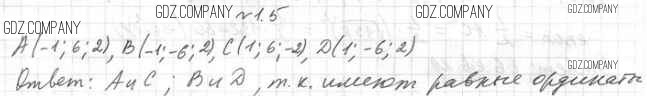 GDZ.COMPANY №1.5 GDZ.COMPANY
GDZ.COMPANY
A(-1; 6; 2), B(-1; -6; 2), C(1; 6; -2), D(1; -6; 2)
GDZ.COMPANY
Ответ: A и C ; B и D, т.к. имеют равные ординаты
GDZ.COMPANY